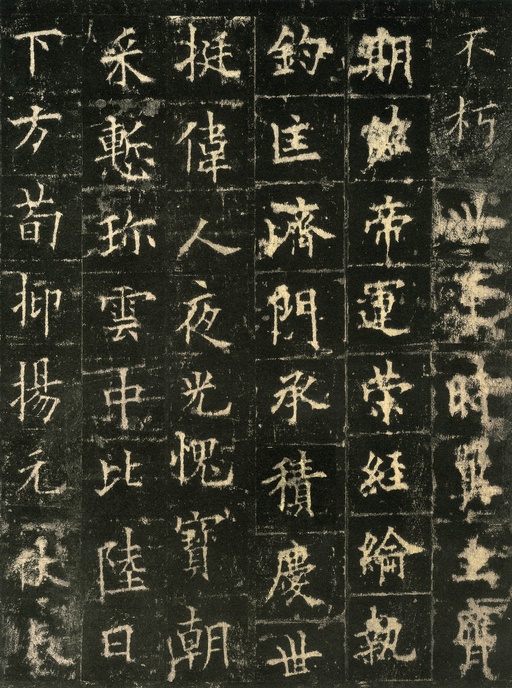 不朽時土
期帝運荣經綸執
鈞匡濟門承積慶世
挺偉人夜光愧寳朝
采慙珎雲中比陸日
下方荀抑揚元